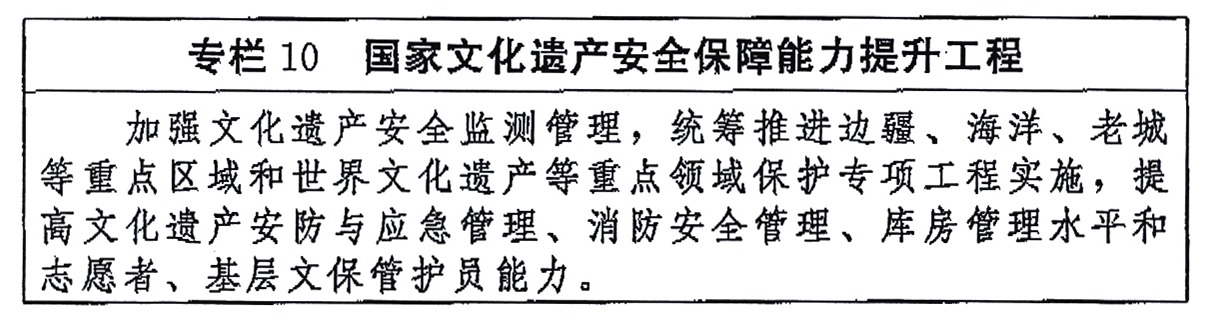 专栏 10 国家文化遗产安全保障能力提升工程
加强文化遗产安全监测管理，统筹推进边疆、海洋、老城
等重点区域和世界文化遗产等重点领域保护专项工程实施，提
高文化遗产安防与应急管理、消防安全管理、库房管理水平和
志愿者、基层文保管护员能力。